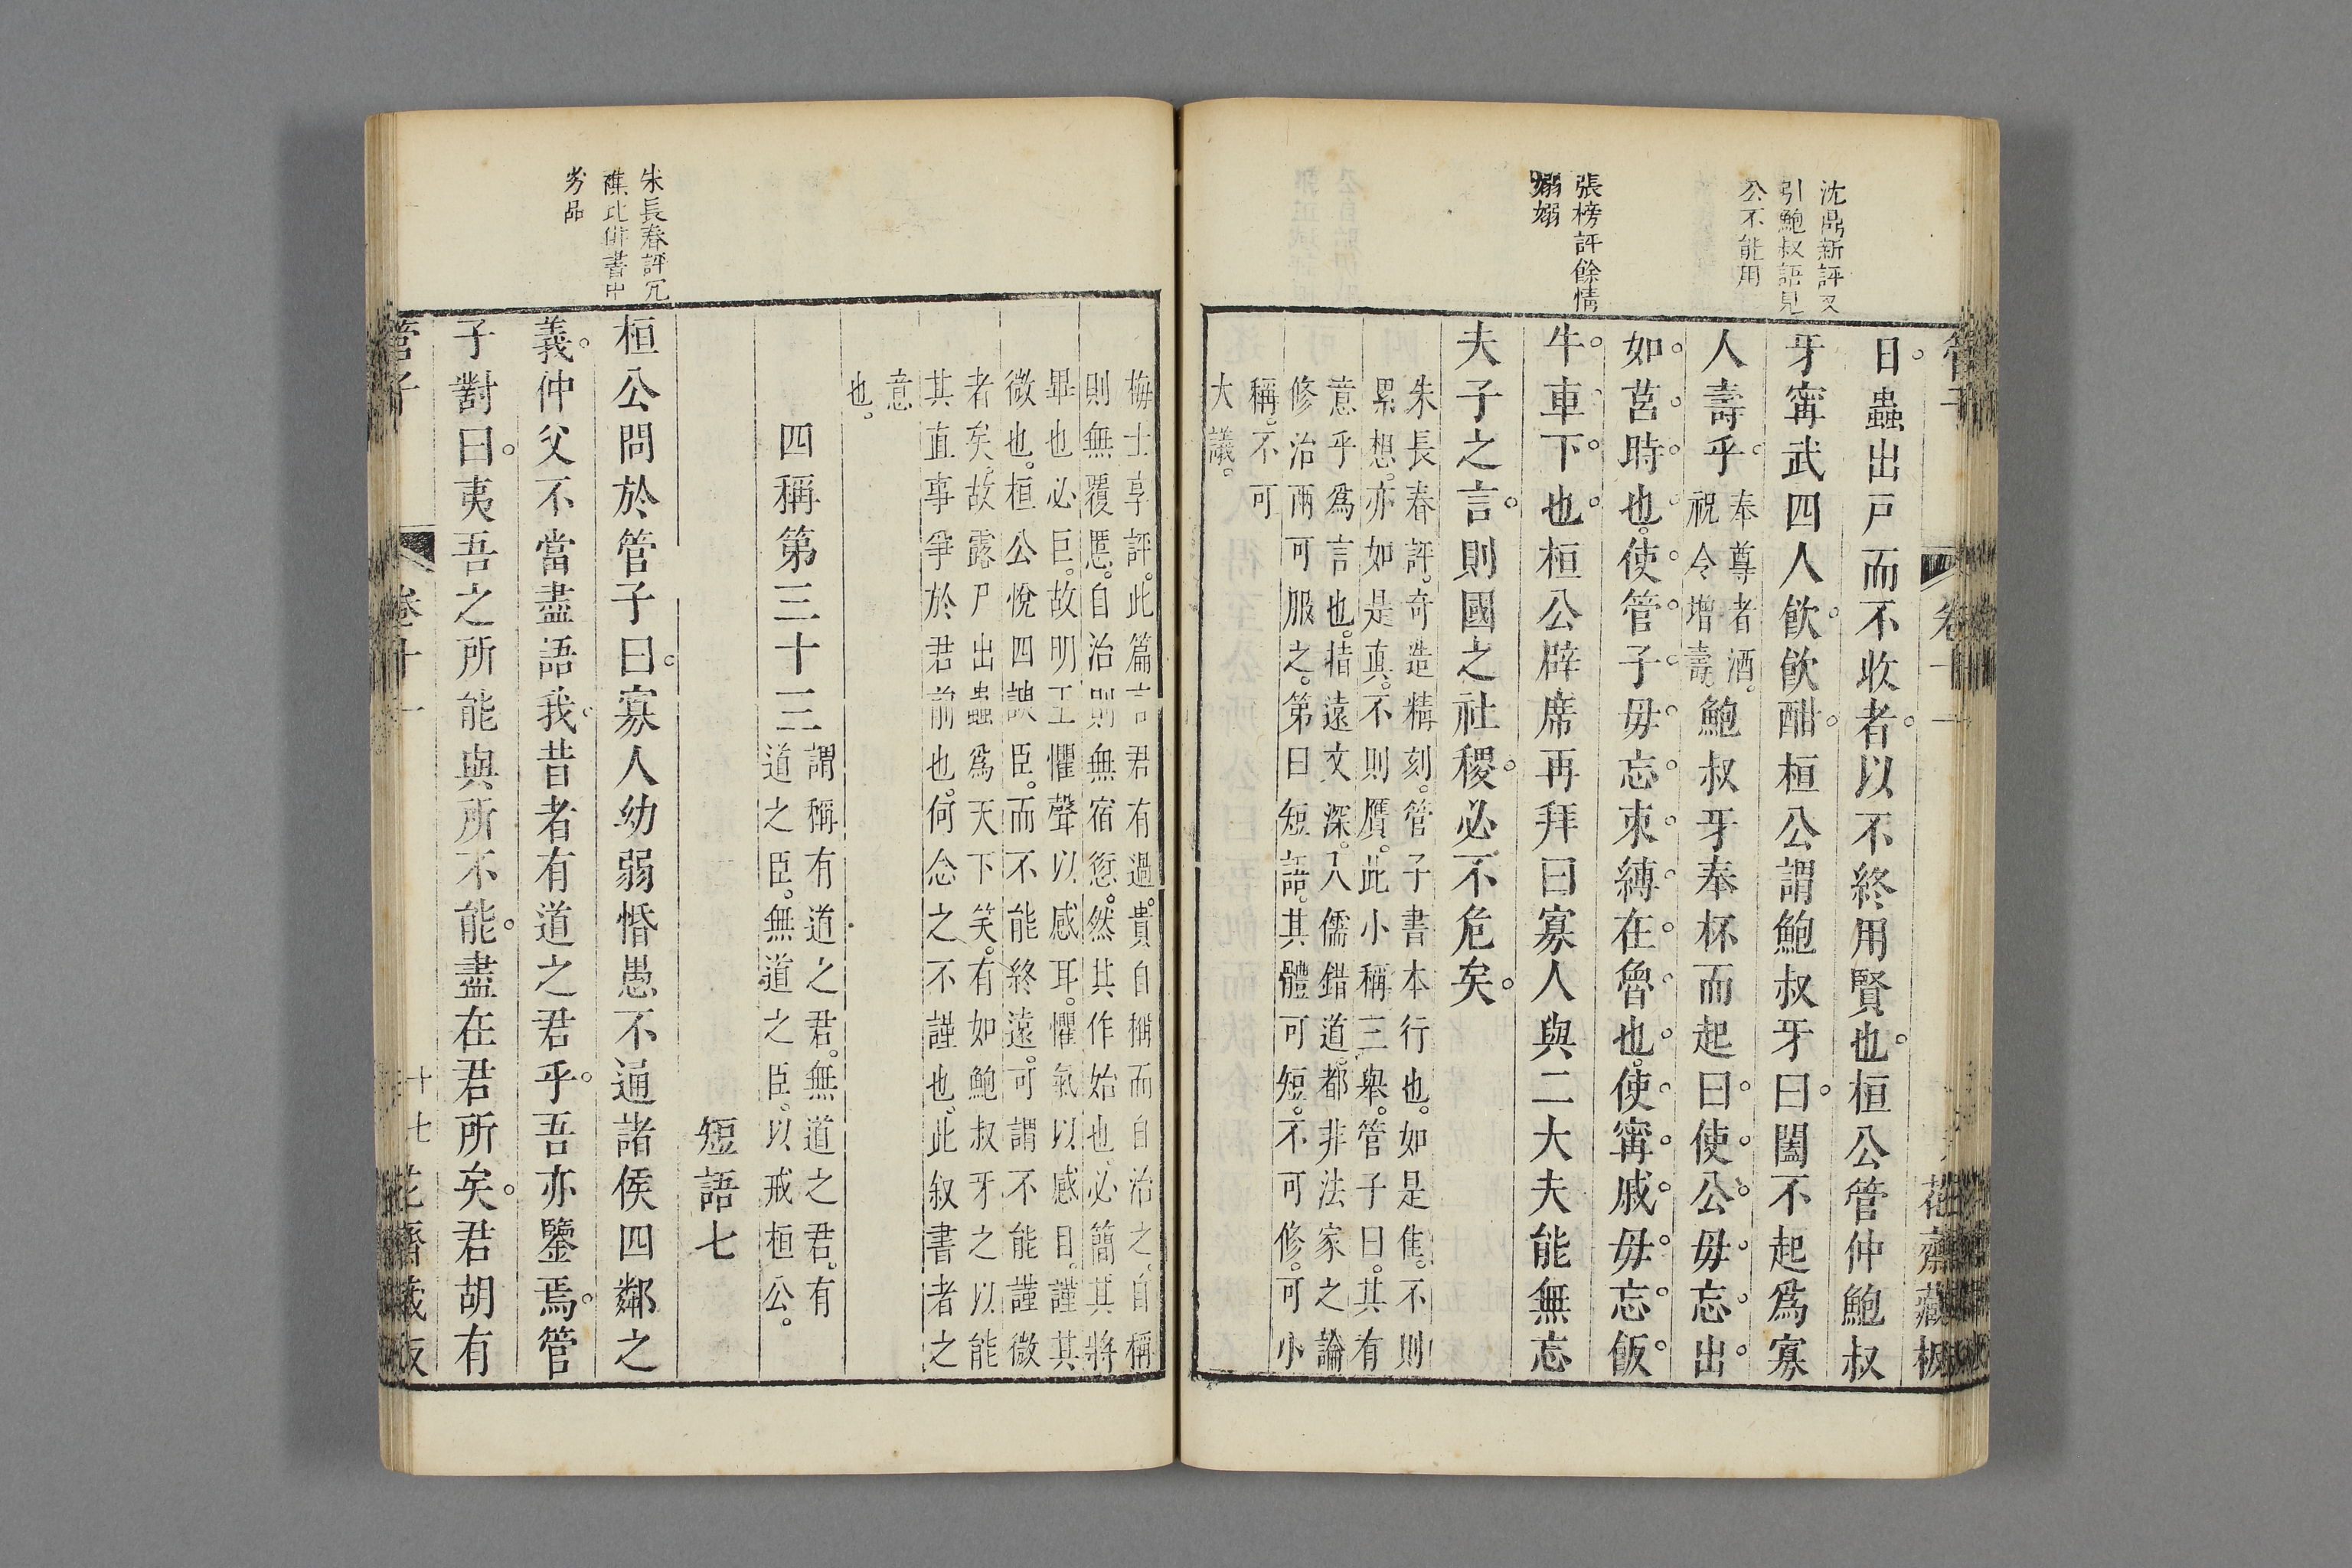 沈鼎新評又
引鮑叔語見
公不能用
張榜評餘情
嫋嫋
管子
卷十一
花齋藏板
日。蟲出戸而不收者。以不終用賢也。桓公管仲鮑叔
牙甯武四人飲。飲酣。桓公謂鮑叔牙曰。闔不起爲寡
人壽乎。奉尊者酒。祝令增壽。鮑叔牙奉杯而起曰。使公。毋忘。出。
如莒時也。使管子毋忘束縛在魯也。使甯戚毋忘飯
牛車下也。桓公辟席再拜曰寡人與二大夫能無忘
夫子之言。則國之社稷。必不危矣。
朱長春評。奇造精刻。管子書本行也。如是隹。不則
累想。亦如是真。不則贋。此小稱三舉。管子曰。其有
意乎爲言也。措遠文深。入儒錯道。都非法家之論
修治兩可服之。第曰短語。其體可短。不可修。可小
稱。不可
大議。
梅士享評。此篇言君有過。貴自稱而自治之。自稱
則無覆慝。自治則無宿愆。然其作始也必簡其將
畢也必巨。故明王懼聲以感耳。懼氣以感目。謹其
微也。桓公悅四諛臣。而不能終遠。可謂不能謹微
者矣。故露尸出蟲爲天下笑。有如鮑叔牙之以能
其直事爭於君前也。何念之不謹也。此叙書者之
意
也。
四稱第三十三
謂稱有道之君。無道之君。有
道之臣。無道之臣。以戒桓公。
短語七
朱長春評冗
襍此俳書中
劣品
桓公問於管子曰。寡人幼弱惛愚不通諸侯四鄰之
義。仲父不當盡語我昔者有道之君乎。吾亦鑒焉。管
子對曰。夷吾之所能與所不能。盡在君所矣。君胡有
管子
卷十一
十七
花齋藏板